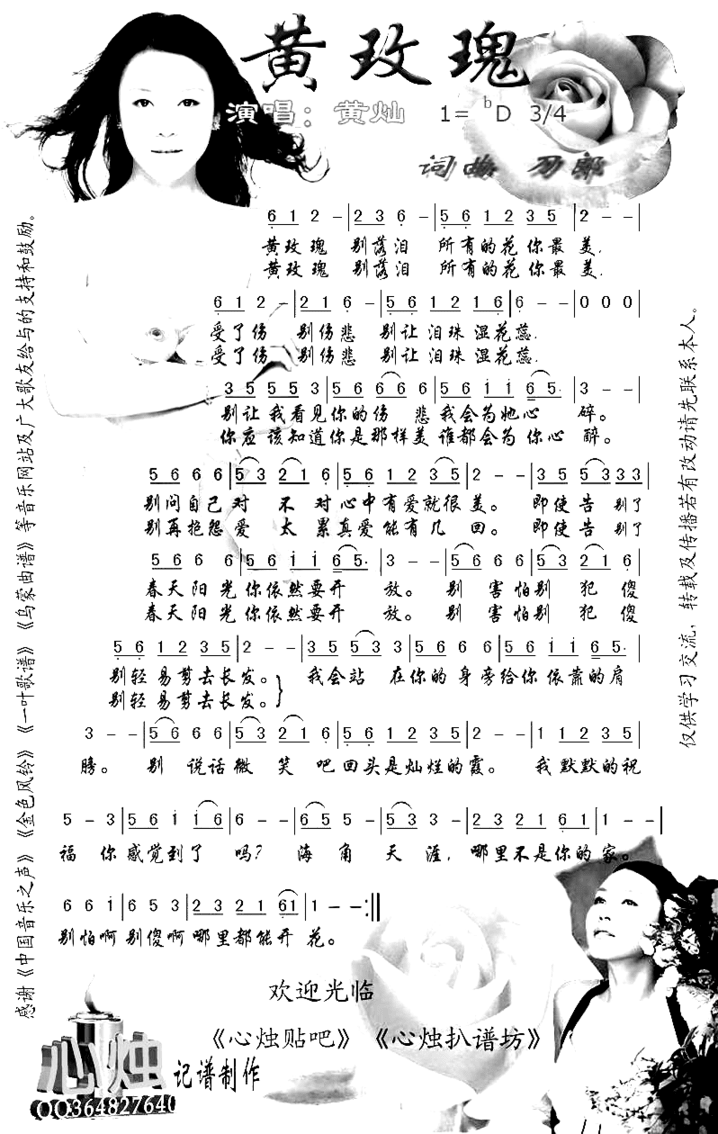 黄玫瑰
演唱：黄灿 1= ᵇD 3/4
词曲 刀郎
6 1 2 - | 2 3 6 - | 5 6 1 2 3 5 | 2 - - |
黄玫瑰 别落泪 所有的花你最美.
黄玫瑰 别落泪 所有的花你最美.
6 1 2 - | 2 1 6 - | 5 6 1 2 1 6 | 6 - - | 0 0 0 |
受了伤 别伤悲 别让泪珠湿花蕊.
受了伤 别伤悲 别让泪珠湿花蕊.
3 5 5 5 3 | 5 6 6 6 6 | 5 6 i i 6 5. | 3 - - |
别让我看见你的伤 悲我会为她心 碎。
你应该知道你是那样美谁都会为你心 醉。
5 6 6 6 | 5 3 2 1 6 | 5 6 1 2 3 5 | 2 - - | 3 5 5 3 3 3 |
别问自己对 不 对心中有爱就很美。 即使告别了
别再抱怨爱 太 累真爱能有几 回。 即使告别了
5 6 6 6 | 5 6 i i 6 5. | 3 - - | 5 6 6 6 | 5 3 2 1 6 |
春天阳光你依然要开 放。 别 害怕别 犯 傻
春天阳光你依然要开 放。 别 害怕别 犯 傻
5 6 1 2 3 5 | 2 - - | 3 5 5 3 3 | 5 6 6 6 | 5 6 i i 6 5. |
别轻易剪去长发。 我会站 在你的身旁给你依靠的肩
别轻易剪去长发。
3 - - | 5 6 6 6 | 5 3 2 1 6 | 5 6 1 2 3 5 | 2 - - | 1 1 2 3 5 |
膀。 别 说话微 笑 吧回头是灿烂的霞。 我默默的祝
5 - 3 | 5 6 i i 6 | 6 - - | 6 5 5 - | 5 3 3 - | 2 3 2 1 6 1 | 1 - - |
福 你感觉到了 吗？ 海 角 天 涯，哪里不是你的家。
6 6 i | 6 5 3 | 2 3 2 1 6 1 | 1 - - :||
别怕啊别傻啊哪里都能开 花。
欢迎光临
《心烛贴吧》 《心烛扒谱坊》
心烛 记谱制作
QQ364827640
感谢《中国音乐之声》《金色风铃》《一叶歌谱》《乌蒙曲谱》等音乐网站及广大歌友给与的支持和鼓励。
仅供学习交流，转载及传播若有改动请先联系本人。